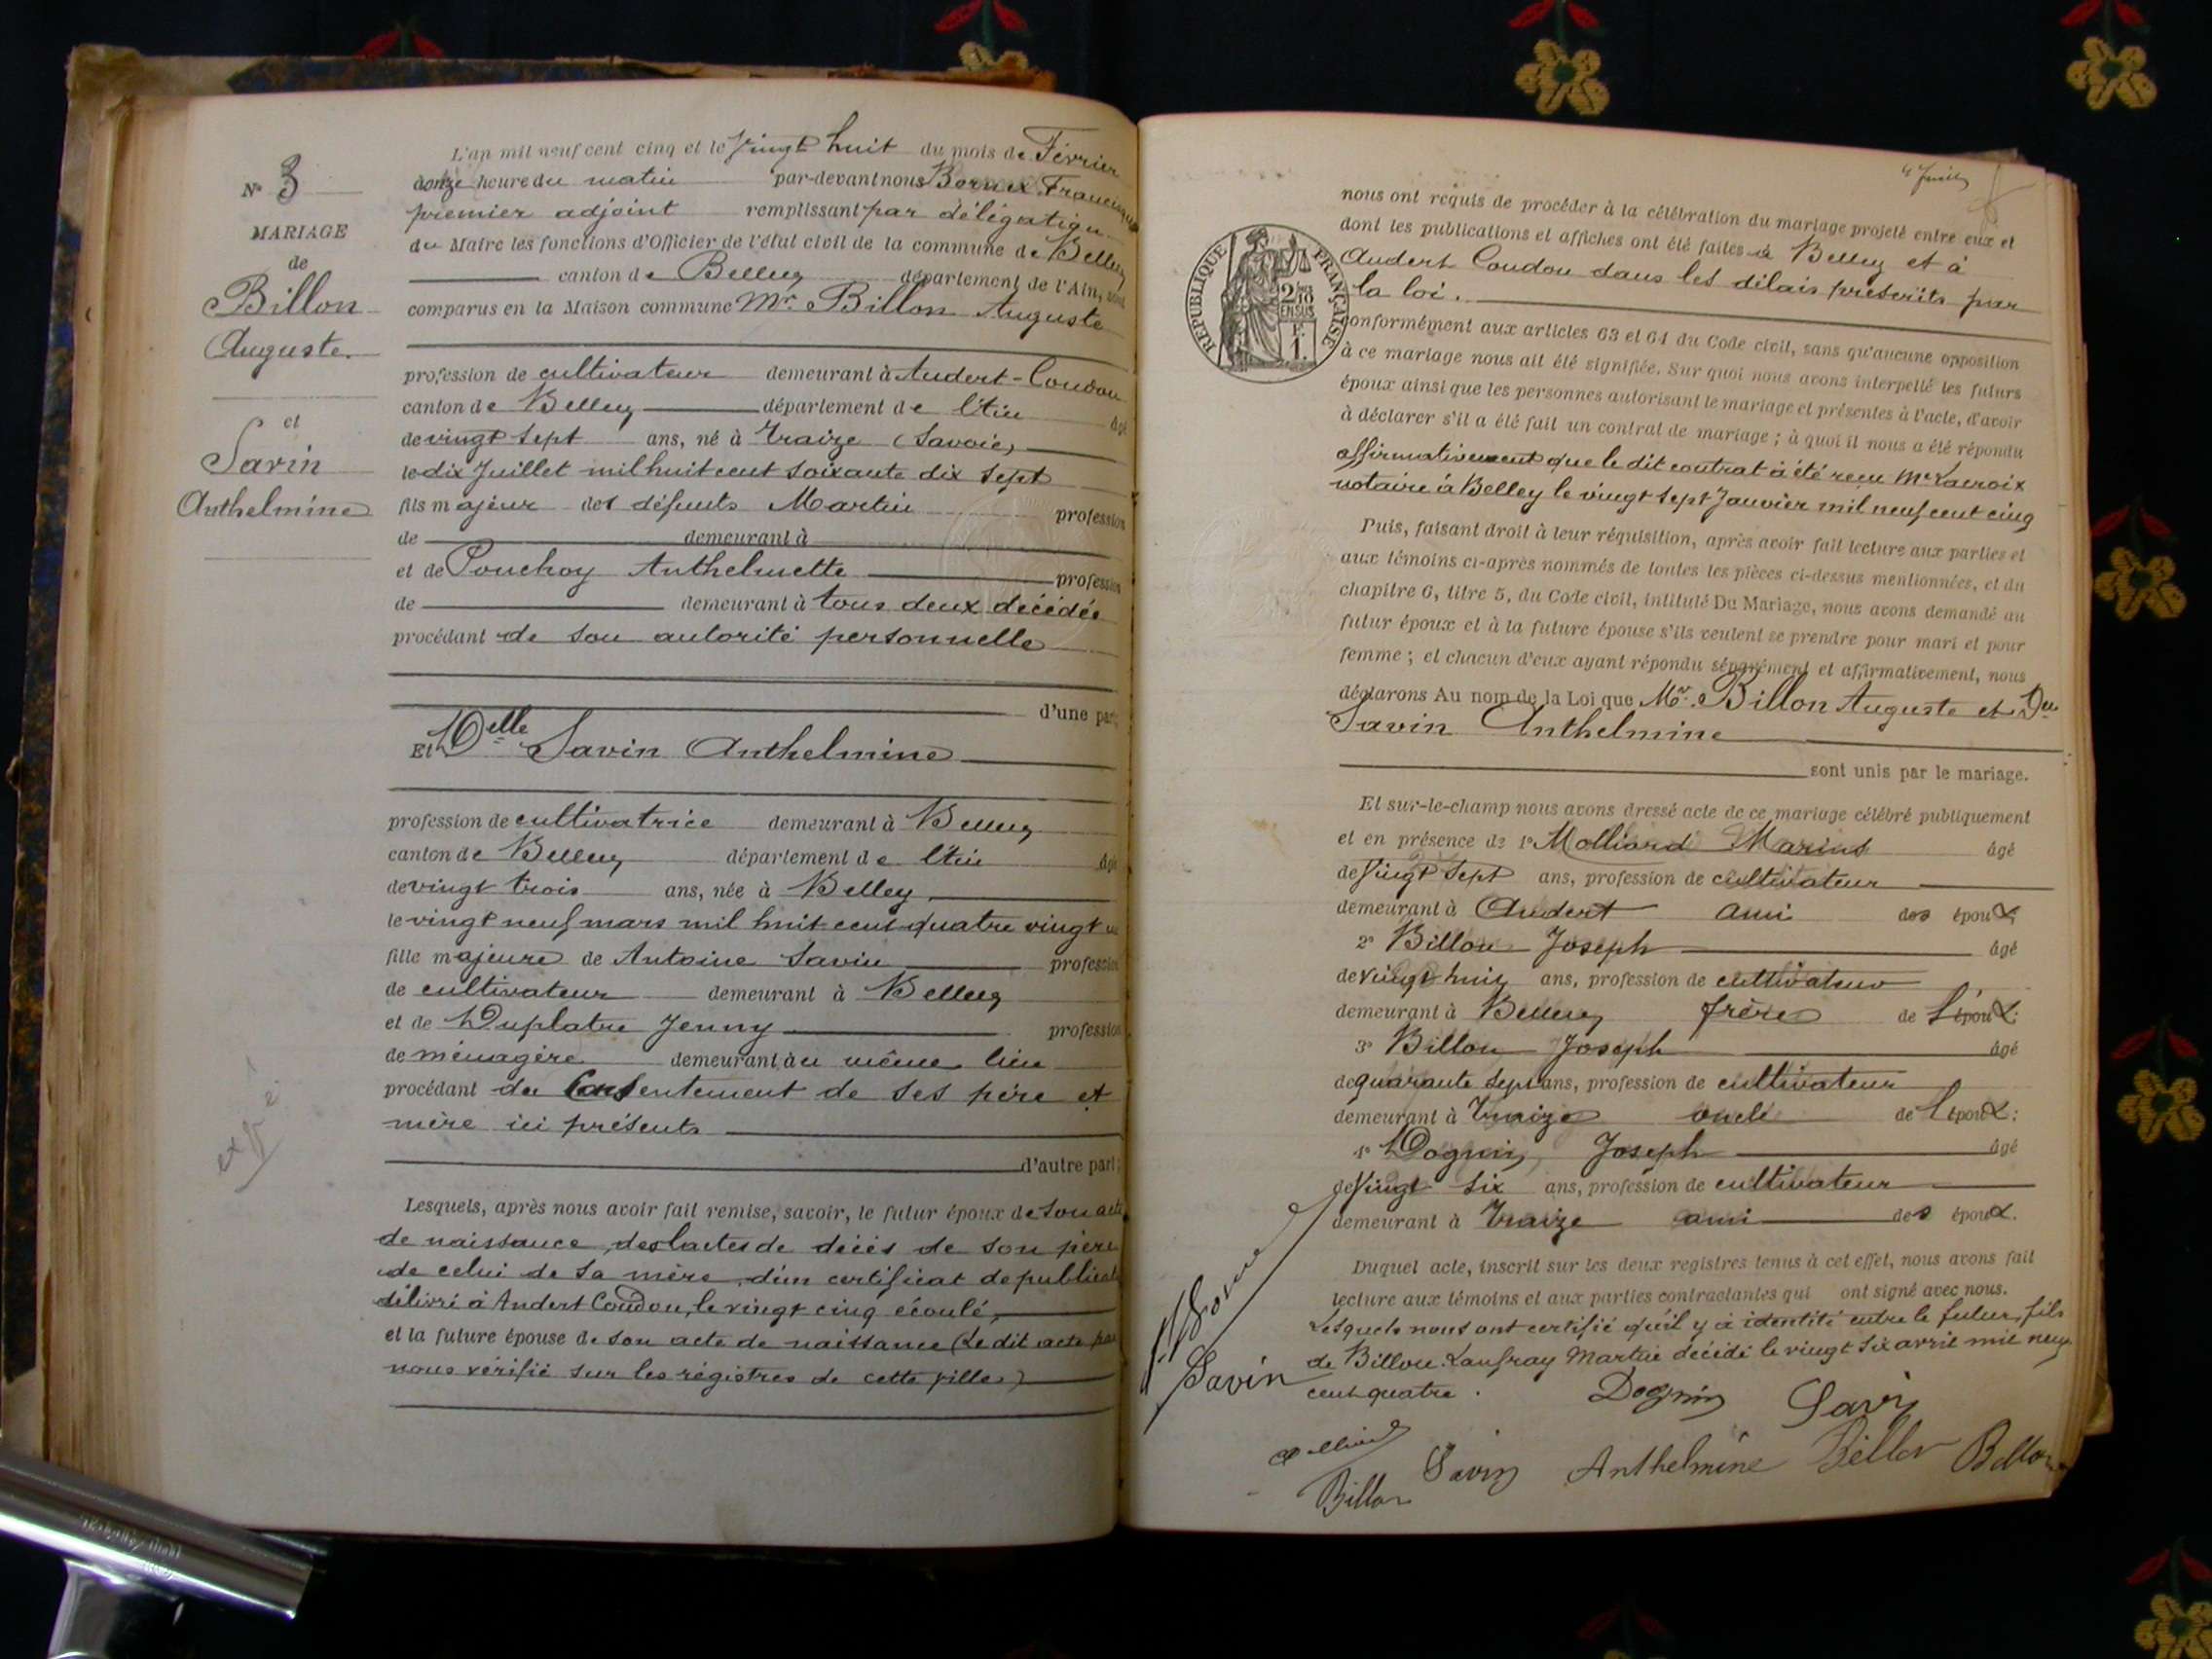 N° 3
MARIAGE
de
Billon
Auguste
et
Savin
Anthelmine
L'an mil neuf cent cinq et le vingt huit du mois de Février
onze heure du matin par-devant nous Bornex
premier adjoint remplissant par délégation
du Maire les fonctions d'Officier de l'état civil de la commune de Belley
canton de Belley département de l'Ain, sont
comparus en la Maison commune Mr. Billon Auguste
profession de cultivateur demeurant à Andert-Condon
canton de Belley département de l'Ain âgé
de vingt sept ans, né à Traize (Savoie)
le dix Juillet mil huit cent soixante dix sept
fils majeur des défunts Martin profession
de demeurant à
et de Pouchoy Anthelmette profession
de demeurant à tous deux décédés
procédant de son autorité personnelle
d'une part;
Et Delle Savin Anthelmine
profession de cultivatrice demeurant à Belley
canton de Belley département de l'Ain âgé
de vingt trois ans, née à Belley
le vingt neuf mars mil huit cent quatre vingt un
fille majeure de Antoine Savin profession
de cultivateur demeurant à Belley
et de Duplatre Jenny profession
de ménagère demeurant au même lieu
procédant du Consentement de ses père et
mère ici présents
d'autre part;
Lesquels, après nous avoir fait remise, savoir, le futur époux de son acte
de naissance, des actes de décès de son père
de celui de sa mère, d'un certificat de
délivré à Andert Condon, le vingt cinq écoulé,
et la future épouse de son acte de naissance (Le dit acte par
nous vérifié sur les régistres de cette ville)
nous ont requis de procéder à la célébration du mariage projeté entre eux et
dont les publications et affiches ont été faites à Belley et à
Andert Condon dans les délais préscrits par
la loi.
RÉPUBLIQUE FRANÇAISE
2/10
EN SUS
F.
1.
conformément aux articles 63 et 64 du Code civil, sans qu'aucune opposition
à ce mariage nous ait été signifiée. Sur quoi nous avons interpellé les futurs
époux ainsi que les personnes autorisant le mariage et présentes à l'acte, d'avoir
à déclarer s'il a été fait un contrat de mariage; à quoi il nous a été répondu
affirmativement que le dit contrat à été reçu Me Lacroix
notaire à Belley le vingt sept Janvier mil neuf cent cinq
Puis, faisant droit à leur réquisition, après avoir fait lecture aux parties et
aux témoins ci-après nommés de toutes les pièces ci-dessus mentionnées, et du
chapitre 6, titre 5, du Code civil, intitulé Du Mariage, nous avons demandé au
futur époux et à la future épouse s'ils veulent se prendre pour mari et pour
femme; et chacun d'eux ayant répondu séparément et affirmativement, nous
déclarons Au nom de la Loi que Mr. Billon Auguste et Dlle
Savin Anthelmine
sont unis par le mariage.
Et sur-le-champ nous avons dressé acte de ce mariage célébré publiquement
et en présence de 1° Molliard Marius âgé
de vingt sept ans, profession de cultivateur
demeurant à Andert ami des époux;
2° Billon Joseph âgé
de vingt huit ans, profession de cultivateur
demeurant à Belley frère de l'époux;
3° Billon Joseph âgé
de quarante sept ans, profession de cultivateur
demeurant à Traize oncle de l'époux;
4° Dognin, Joseph âgé
de vingt six ans, profession de cultivateur
demeurant à Traize ami des époux.
Duquel acte, inscrit sur les deux registres tenus à cet effet, nous avons fait
lecture aux témoins et aux parties contractantes qui ont signé avec nous.
Lesquels nous ont certifié qu'il y a identité entre le futur, fils
de Billon Lanfray Martin décédé le vingt six avril mil neuf
cent quatre.
Dognin Savin
Savin
Savin Anthelmine Billon Billon
Billon